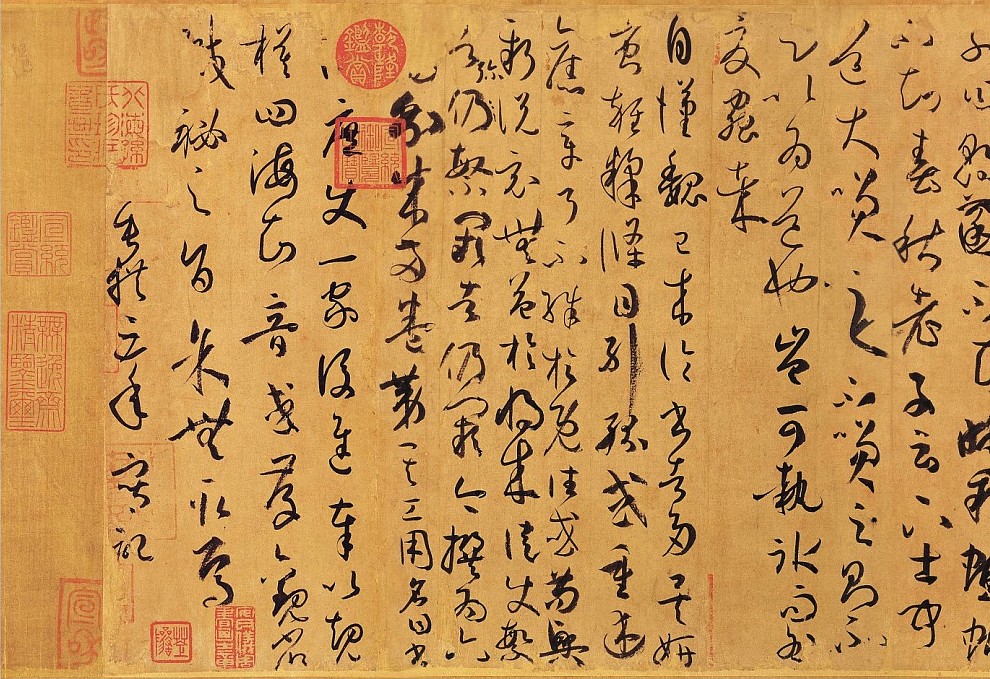 子曰朝菌不知晦朔蟪蛄
不知春秋老子云下士聞
道大笑之不笑之則不
足以為道也豈可執冰而咎
夏蟲哉
自漢魏已來論書者多矣妍
蚩雜糅條目糾紛或重述
舊章了不殊於既往或苟興
新說竟無益於將來徒使繁
者弥仍繁闕者仍闕今撰為六
篇分成兩卷第其工用名曰書
譜庶使一家後進奉以規
模四海知音或存觀省
緘秘之旨余無取焉
垂拱三年寫記
乾隆鑑賞
宣統鑑賞
無逸齋精鑒璽
宣和